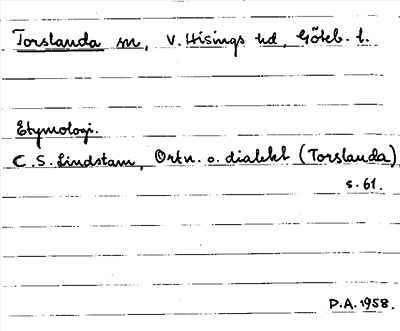 Torslanda sn, V. Hisings hd, Göteb. l.
Etymologi.
C. S. Lindstam, Ortn. o. dialekt (Torslanda)
s. 61.
D.A. 1958.